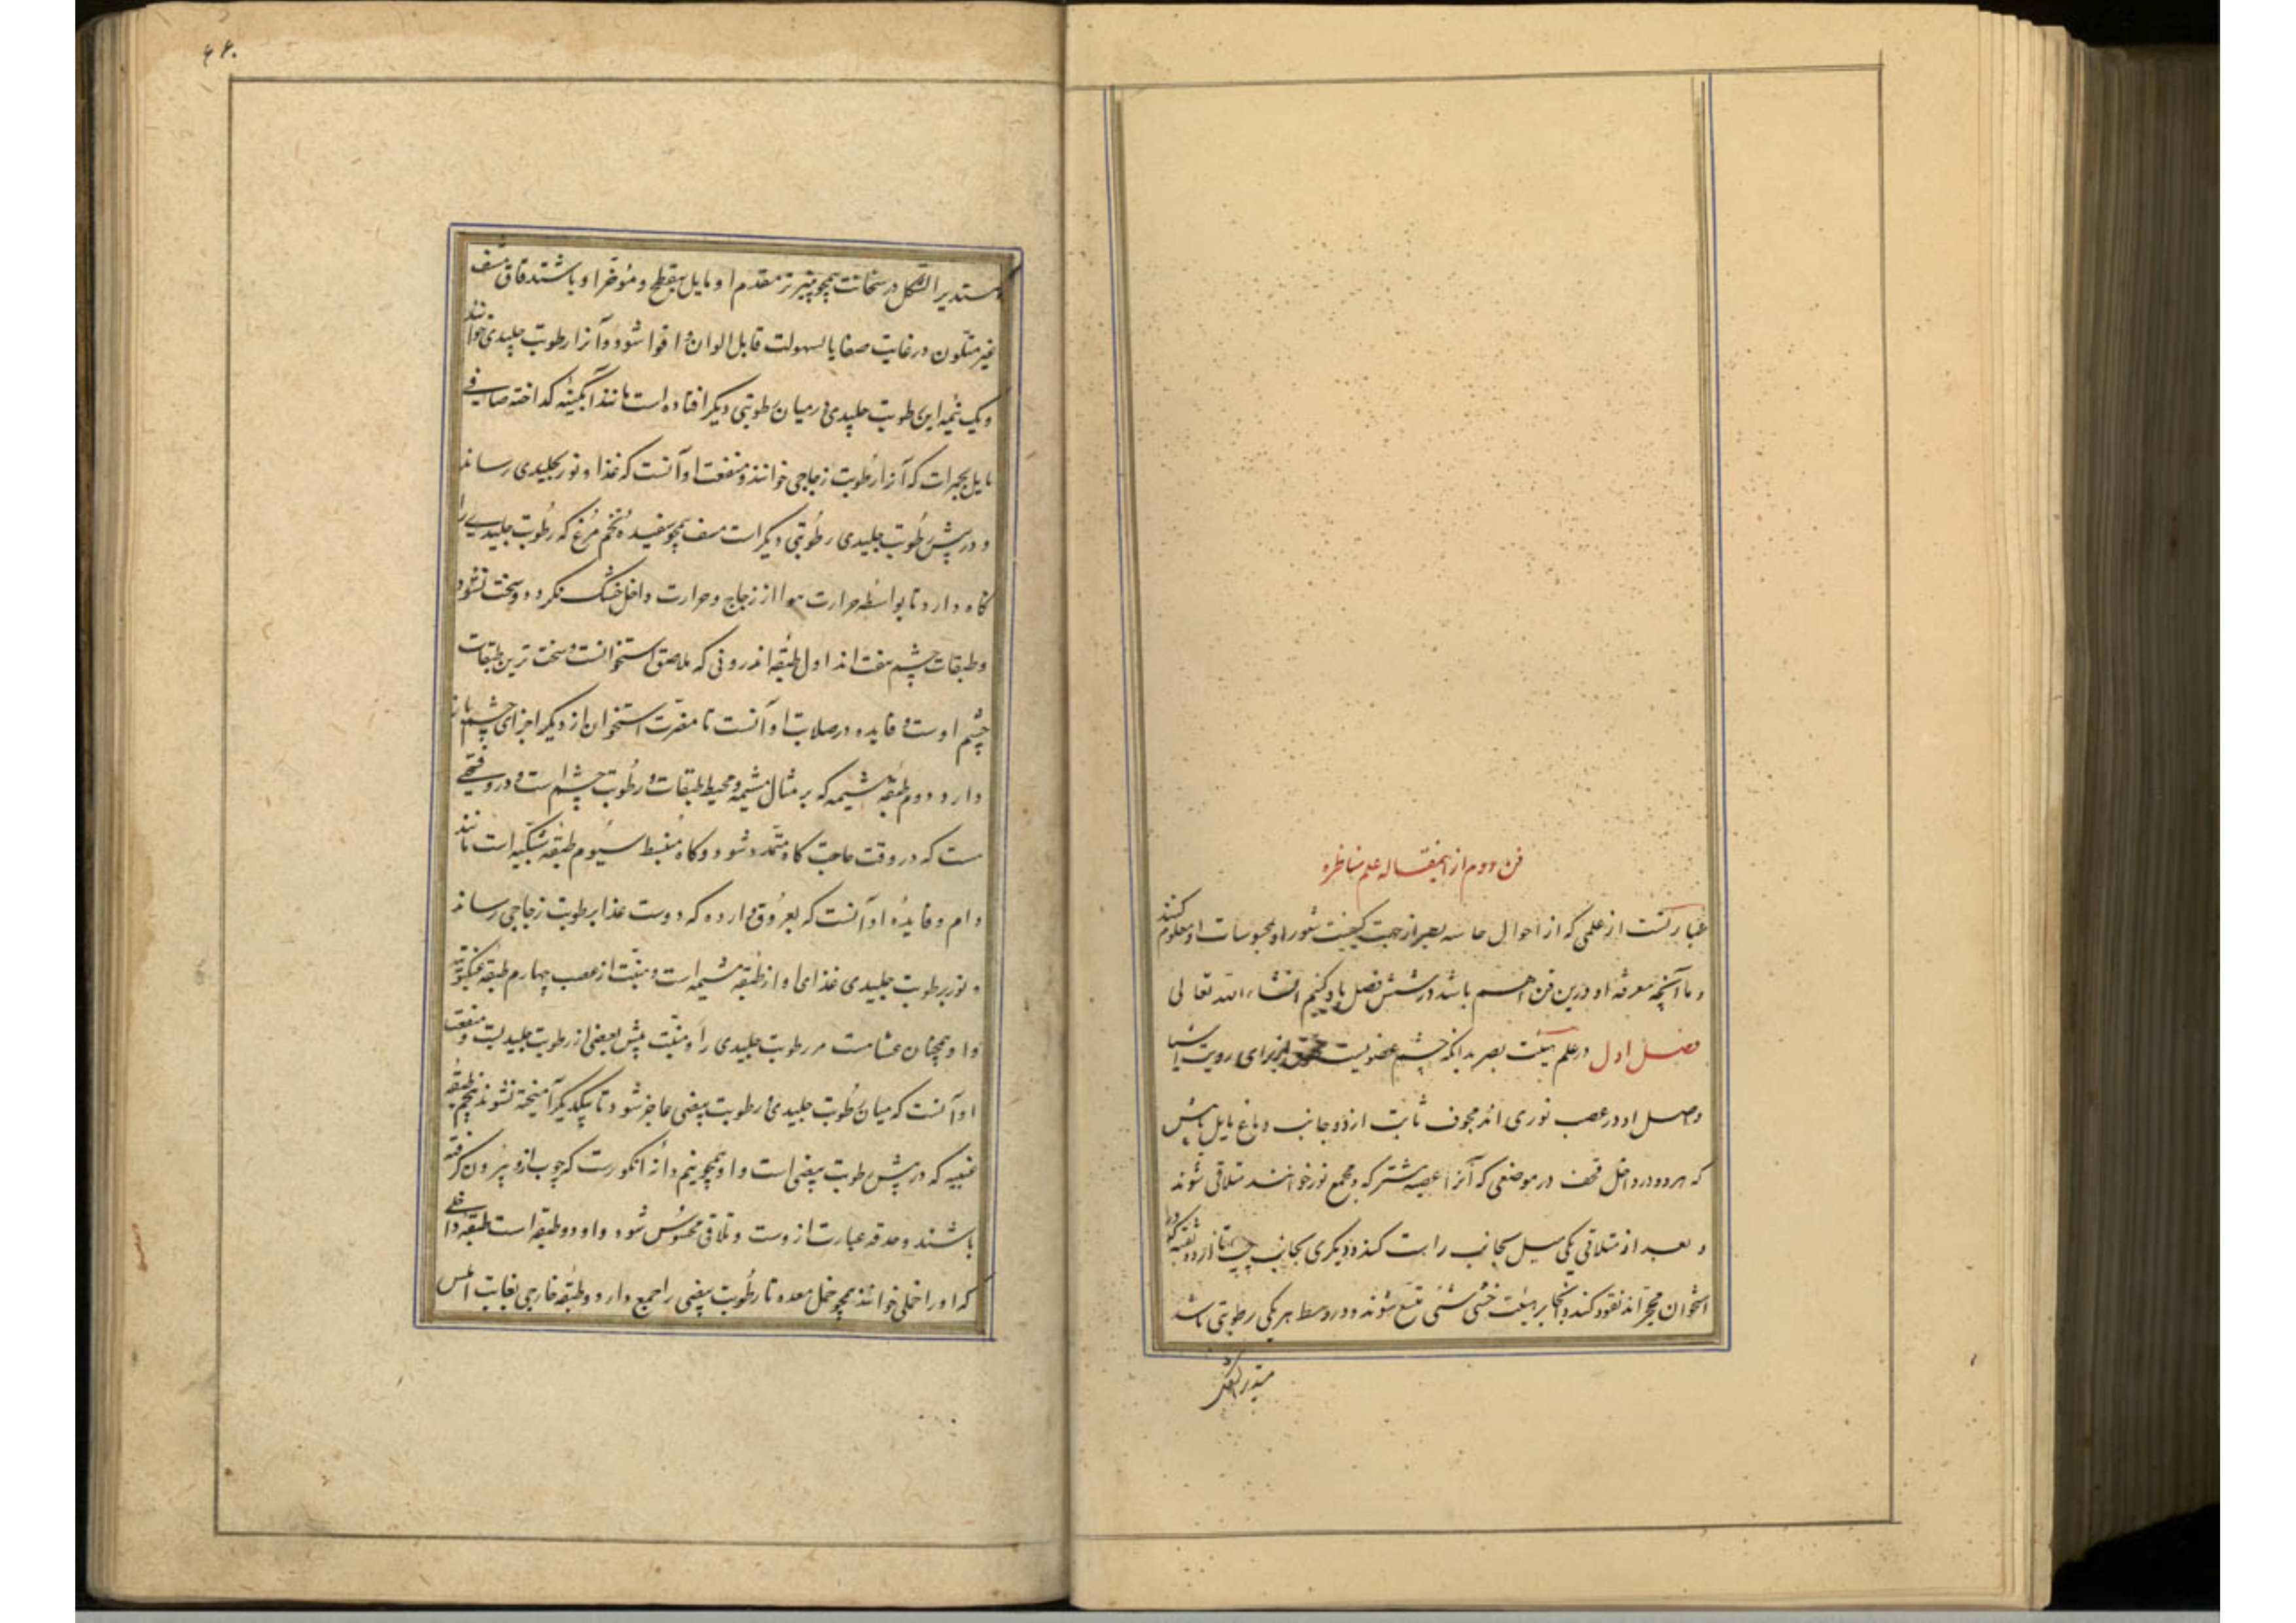 فن دوم از این مقاله علم مناظره
عبارتست از علمی که از احوال حاسه بصر از جهت کیفیت شعور او بمحسوسات او معلوم کنند
و ما آنچه معرفة او درین فن اهم باشد در شش فصل یاد کنیم انشاء الله تعالی
فصل اول در علم هیئت بصر بدانکه چشم عضویست از برای رویت اشیا
وصل او در عصب نوری اند مجوف ثابت از دو جانب دماغ مایل بپش
که هر دو در داخل قحف در موضعی که آنرا عصبه مشترکه و مجمع نور خوانند متلاقی شوند
و بعد از متلاقی یکی میل بجانب راست کند و دیگری بجانب چپ تا از دو ثقبه که در
استخوان محجر اند نفوذ کنند و آنجا بر هیئت متسع شوند و در وسط هر یکی رطوبتی باشد
مستدیر الشکل
۶۶۰
مستدیر الشکل در سخانت همچو پنیر تر مقدم او مایل بتقطح و مؤخر او باستدقاق مشف
غیر متلون در غایت صفا یا بسهولت قابل الوان و اضوا شود و آنرا رطوبت جلیدی خوانند
و یک نیمه این رطوبت جلیدی در میان رطوبتی دیگر افتاده است مانند آبگینه گداخته صافی
مایل بحمرات که آنرا رطوبت زجاجی خوانند و منفعت او آنست که غذا و نور بجلیدی رساند
و در پیش رطوبت جلیدی رطوبتی دیگر است مشف همچو سفیده تخم مرغ که رطوبت جلیدی را
نگاه دارد تا بواسطه حرارت هوا از زجاج و حرارت داخل خشک نگردد و سخت نشود
و طبقات چشم هفت اند اول طبقه اندرونی که ملاصق استخوانست و سخت ترین طبقات
چشم اوست و فایده در صلابت او آنست تا مضرت استخوان از دیگر اجزای چشم باز
دارد دوم طبقه مشیمه که بر مثال مشیمه و محیط طبقات و رطوبت چشم است و در و فتحی
ست که در وقت حاجت گاه متمدد شود و گاه منبسط سیوم طبقه شبکیه است مانند
دام و فایده او آنست که بعروق وارده که دوست غذا برطوبت زجاجی رساند
و نور برطوبت جلیدی غذای او از طبقه مشیمه است و منبت از عصب چهارم طبقه عنکبوتیه
و او همچنان غشا مت مر رطوبت جلیدی را و منبت پیش بعضی از رطوبت جلیدیست و منفعت
او آنست که میان رطوبت جلیدی و رطوبت بیضی حاجز شود تا بیکدیگر آمیخته نشوند پنجم طبقه
عنبیه که در پیش رطوبت بیضی است و او همچو نیم دانه انگورست که چوب ازو بیرون گرفته
باشند و حدقه عبارت ازوست و تلاقی محسوس شود و او دو طبقه است طبقه داخلی
که او را خملی خوانند همچو خمل معده تا رطوبت بیضی را جمع دارد و طبقه خارجی بغایت املس